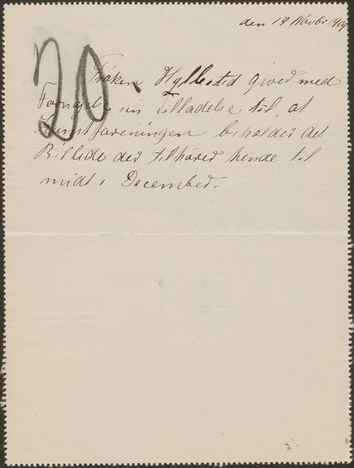 den 18 Novbr
20.
Frøken Hyllested giver med
Fornøielse sin Tilladelse til, at
Kunstforeningen beholder det
Billede der tilhører hende til
midt i December.